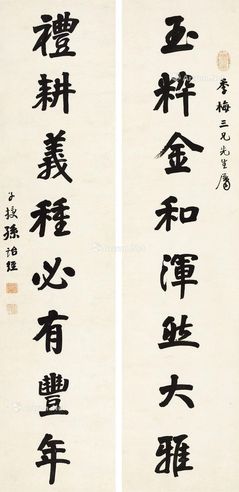 季梅三兄先生屬
玉粹金和渾然大雅
禮耕義種必有豐年
子授孫詒經